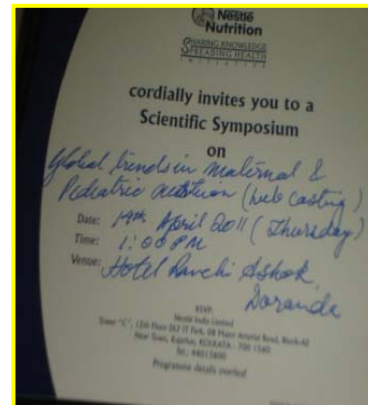 Nestlé
Nutrition
SHARING KNOWLEDGE
SPREADING HEALTH
INITIATIVE
cordially invites you to a
Scientific Symposium
on
Global trends in Maternal &
Pediatric nutrition (web casting)
Date: 14th April 2011 (Thursday)
Time: 1:00 PM
Venue: Hotel Ranchi Ashok,
Doranda
RSVP:
Nestlé India Limited
Tower "C", 12th Floor DLF IT Park, 08 Major Arterial Road, Block-AF
New Town, Rajarhat, KOLKATA - 700 156
Tel.: 44015800
Programme details overleaf